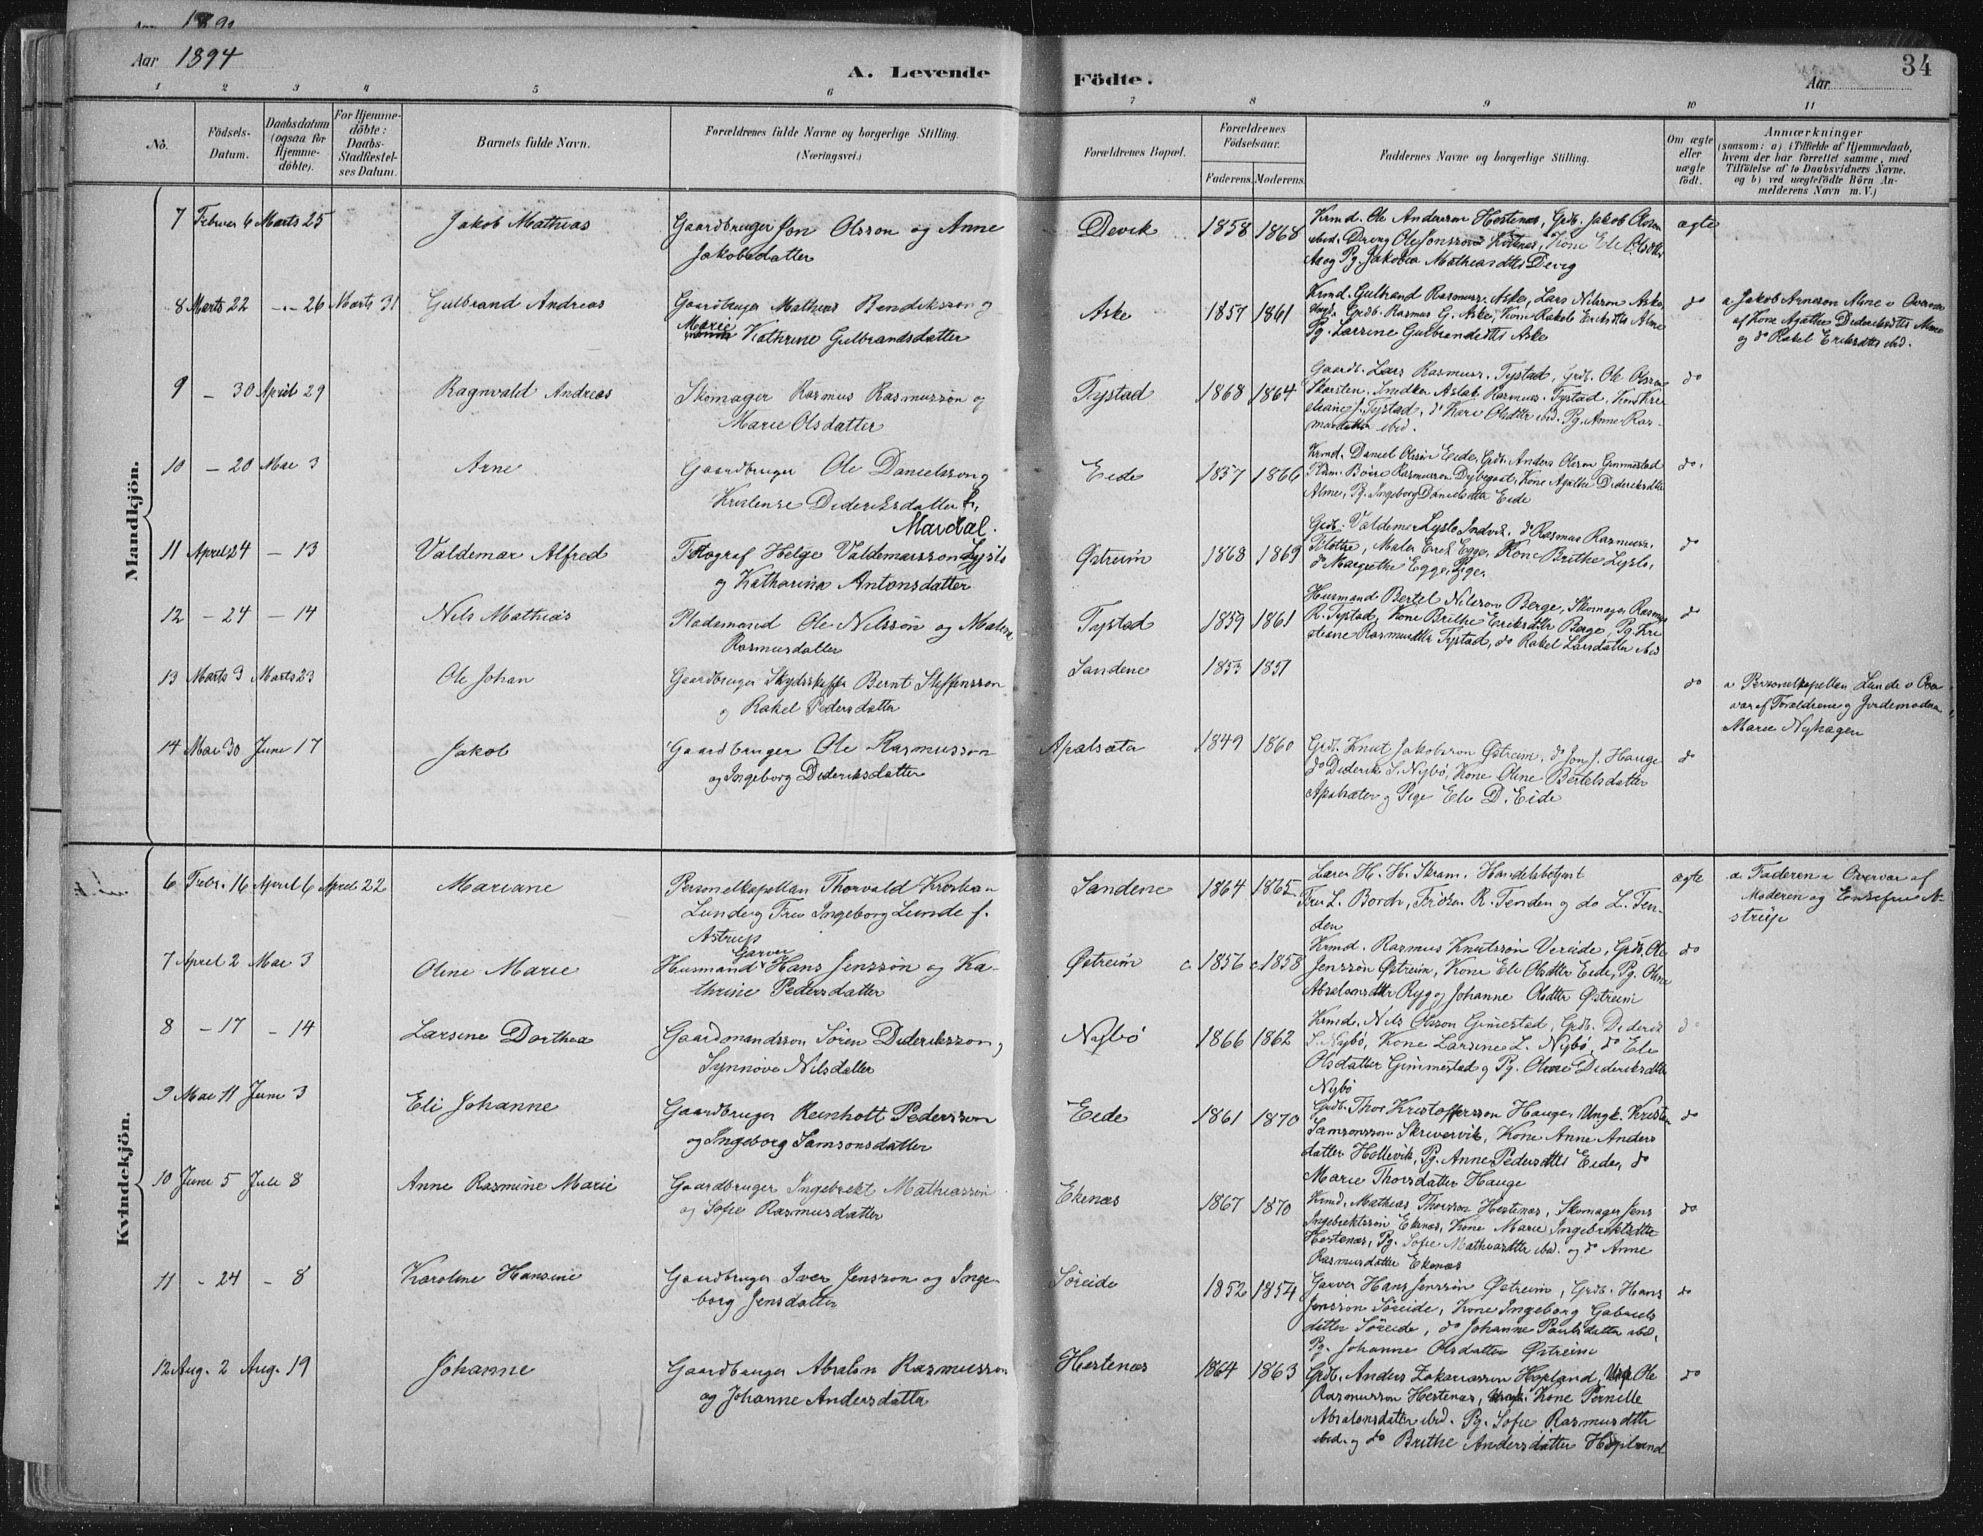 Aar 1894
A. Levende Födte.
Aar
34
1 2 3 4 5 6 7 8 9 10 11
No.
Födsels-Datum.
Daabsdatum (ogsaa for Hjemme-döbte).
For Hjemme-döbte: Daabs-Stadfæstel-ses Datum.
Barnets fulde Navn.
Forældrenes fulde Navne og borgerlige Stilling. (Næringsvei.)
Forældrenes Bopæl.
Forældrenes Födselsaar.
Faderens. Moderens.
Faddernes Navne og borgerlige Stilling.
Om ægte eller uægte födt.
Anmærkninger
(saasom: a) i Tilfælde af Hjemmedaab,
hvem der har forrettet samme, med
Tilföielse af to Daabsvidners Navne,
og b) ved uægtefödte Börn An-
melderens Navn m. V.)
Mandkjön.
7 Februar 6 Marts 25 Jakob Mathias
Gaardbruger Jon Olsson og Anne
Jakobsdatter
Devik 1858 1868
Krmd. Ole Andersson Hestenæs, Grdb. Jakob Olsson
ibid. Dreng Ole Jonsson Hestenæs, Kone Eli
Pg. Jakobea Mathiasdtr Devig
ægte
8 Marts 22 -"- 26 Marts 31 Gulbrand Andreas
Gaardbruger Mathias Bendiksson og
Marie Kathrine Gulbrandsdatter
Aske 1857 1861
Krmd. Gulbrand Rasmuss. Aske, Lars Nilsson Aske
Grdb. Rasmus G. Aske, Kone Rakel Eriksdtr Alme
Pg. Larsine Gulbrandsdtr Aske
do
a. Jakob Arneson Alme o Overvær
af Kone Agathe Dideriksdtr Alme
og do Rakel Eriksdtr ibid.
9 - 30 April 29 Ragnvald Andreas
Skomager Rasmus Rasmussön og
Marie Olsdatter
Tystad 1868 1864
Gaardb. Lars Rasmuss. Tystad, Grdb. Ole Olsson
Skarsten, Snedker Aslak Rasmuss. Tystad, Kone Kri-
stiane J. Tystad, do Kari Olsdtr ibid. Pg. Anne Ras-
musdatter ibid.
do
10 - 20 Mai 3 Arne
Gaardbruger Ole Danielsson og
Kristense Dideriksdatter f.
Mardal.
Eide 1857 1866
Krmd. Daniel Olssön Eide, Grdb. Anders Olsson Gimmestad
Böie Rasmusson Dybegoat, Kone Agathe Dideriksdtr
Alme, Pg. Ingeborg Danielsdtr Eide
do.
11 April 24 - 13 Valdemar Alfred
Fotograf Helge Valdemarsson Lyslo
og Katharina Antonsdatter
Østreim 1868 1869
Grdb. Valdemar Lyslo Indvik, do Rasmus Rasmuss.
Maler Erik Egge, Kone Brithe Lyslo,
do Margrethe Egge, Pige
do
12 - 24 - 14 Nils Mathias
Pladsmand Ole Nilssön og Malene
Rasmusdatter
Tystad 1859 1861
Husmand Bertel Nilsson Berge, Skomager Rasmus
R. Tystad, Kone Brithe Eriksdtr Berge, Pg. Kri-
stiane Rasmusdtr Tystad, do Rakel Larsdatter ibid
do
13 Marts 3 Marts 23 Ole Johan
Gaardbruger Skydsskaffer Bernt Steffensson
og Rakel Pedersdatter
Sandene 1853 1851
do
a Personelkapellan Lunde o Over-
vær af Forældrene og Jordemoderen
Marie Nyhagen
14 Mai 30 Juni 17 Jakob
Gaardbruger Ole Rasmusson
og Ingeborg Dideriksdatter
Apalsæter 1849 1860
Grdb. Knut Jakobsson Østreim, do Jon J. Hauge
do Diderik S. Nybö, Kone Oline Bertelsdatter
Apalsæter og Pige Eli D. Eide
do
Kvindekjön.
6 Febr. 16 April 6 April 22 Mariane
Personelkapellan Thorvald Kristian
Lunde og Fru Ingeborg Lunde f.
Astrup
Sandene 1864 1865
Lærer H. H. Skram, Handelsbetjent
Fru L. Bordv, Fröken R. Fenden og do L. Fen-
den
ægte
a. Faderen o Overvær af
Moderen og Enkefru A-
strup
7 April 2 Mai 3 Oline Marie
Garver
Husmand Hans Jenssön og Ka-
thrine Pedersdatter
Østreim c. 1856 c. 1858
Krmd. Rasmus Knutssön Vereide, Grdb. Ole
Jenssön Østreim, Kone Eli Olsdtr Eide, Pg. Oline
Absalonsdtr Ryg og Johanne Olsdtr Østreim
do
8 - 17 - 14 Larsine Dorthea
Gaardmandssön Sören Dideriksson og
Synnöve Nilsdatter
Nybö 1866 1862
Krmd. Nils Olsson Gimestad, Grdb. Diderik
S. Nybö, Kone Larsine L. Nybö, do Eli
Olsdatter Gimmestad og Pg. Oline Dideriksdtr
Nybö
do
9 Mai 11 Juni 3 Eli Johanne
Gaardbruger Reinholt Pedersson
og Ingeborg Samsonsdatter
Eide 1861 1870
Grdb. Thor Kristoffersson Hauge, Ungk. Kristen
Samsonsson Skrivervik, Kone Anne Anders
datter Hellevik, Pg. Anne Pedersdtr Eide, do
Marie Thorsdatter Hauge
do
10 Juni 5 Juli 8 Anne Rasmine Marie
Gaardbruger Ingebrekt Mathiassön
og Sofie Rasmusdatter
Ekenæs 1867 1870
Krmd. Mathias Thorsson Hestenæs, Skomager Jens
Ingebrektssön Ekenæs, Kone Marie Ingebrektsdtr
Hestenæs, Pg. Sofie Mathiasdtr ibid. og do Anne
Rasmusdatter Ekenæs
do
11 - 24 - 8 Karoline Hansine
Gaardbruger Iver Jensson og Inge-
borg Jensdatter
Søreide 1852 1854
Garver Hans Jenssön Østreim, Grdb. Hans
Jenssön Söreide, Kone Ingeborg Gabriels
datter Söreide, do Johanne Paulsdatter ibid,
Pg. Johanne Olsdatter Østreim
do
12 Aug. 2 Aug. 19 Johanne
Gaardbruger Absalon Rasmusson
og Johanne Andersdatter
Hestenæs 1864 1863
Grdb. Anders Zakariasson Hopland, Ungk. Ole
Rasmusson Hestenæs, Kone Pernille
Absalonsdatter ibid. Pg. Sofie Rasmusdtr
ibid. og do Brithe Andersdatter Hopland
do